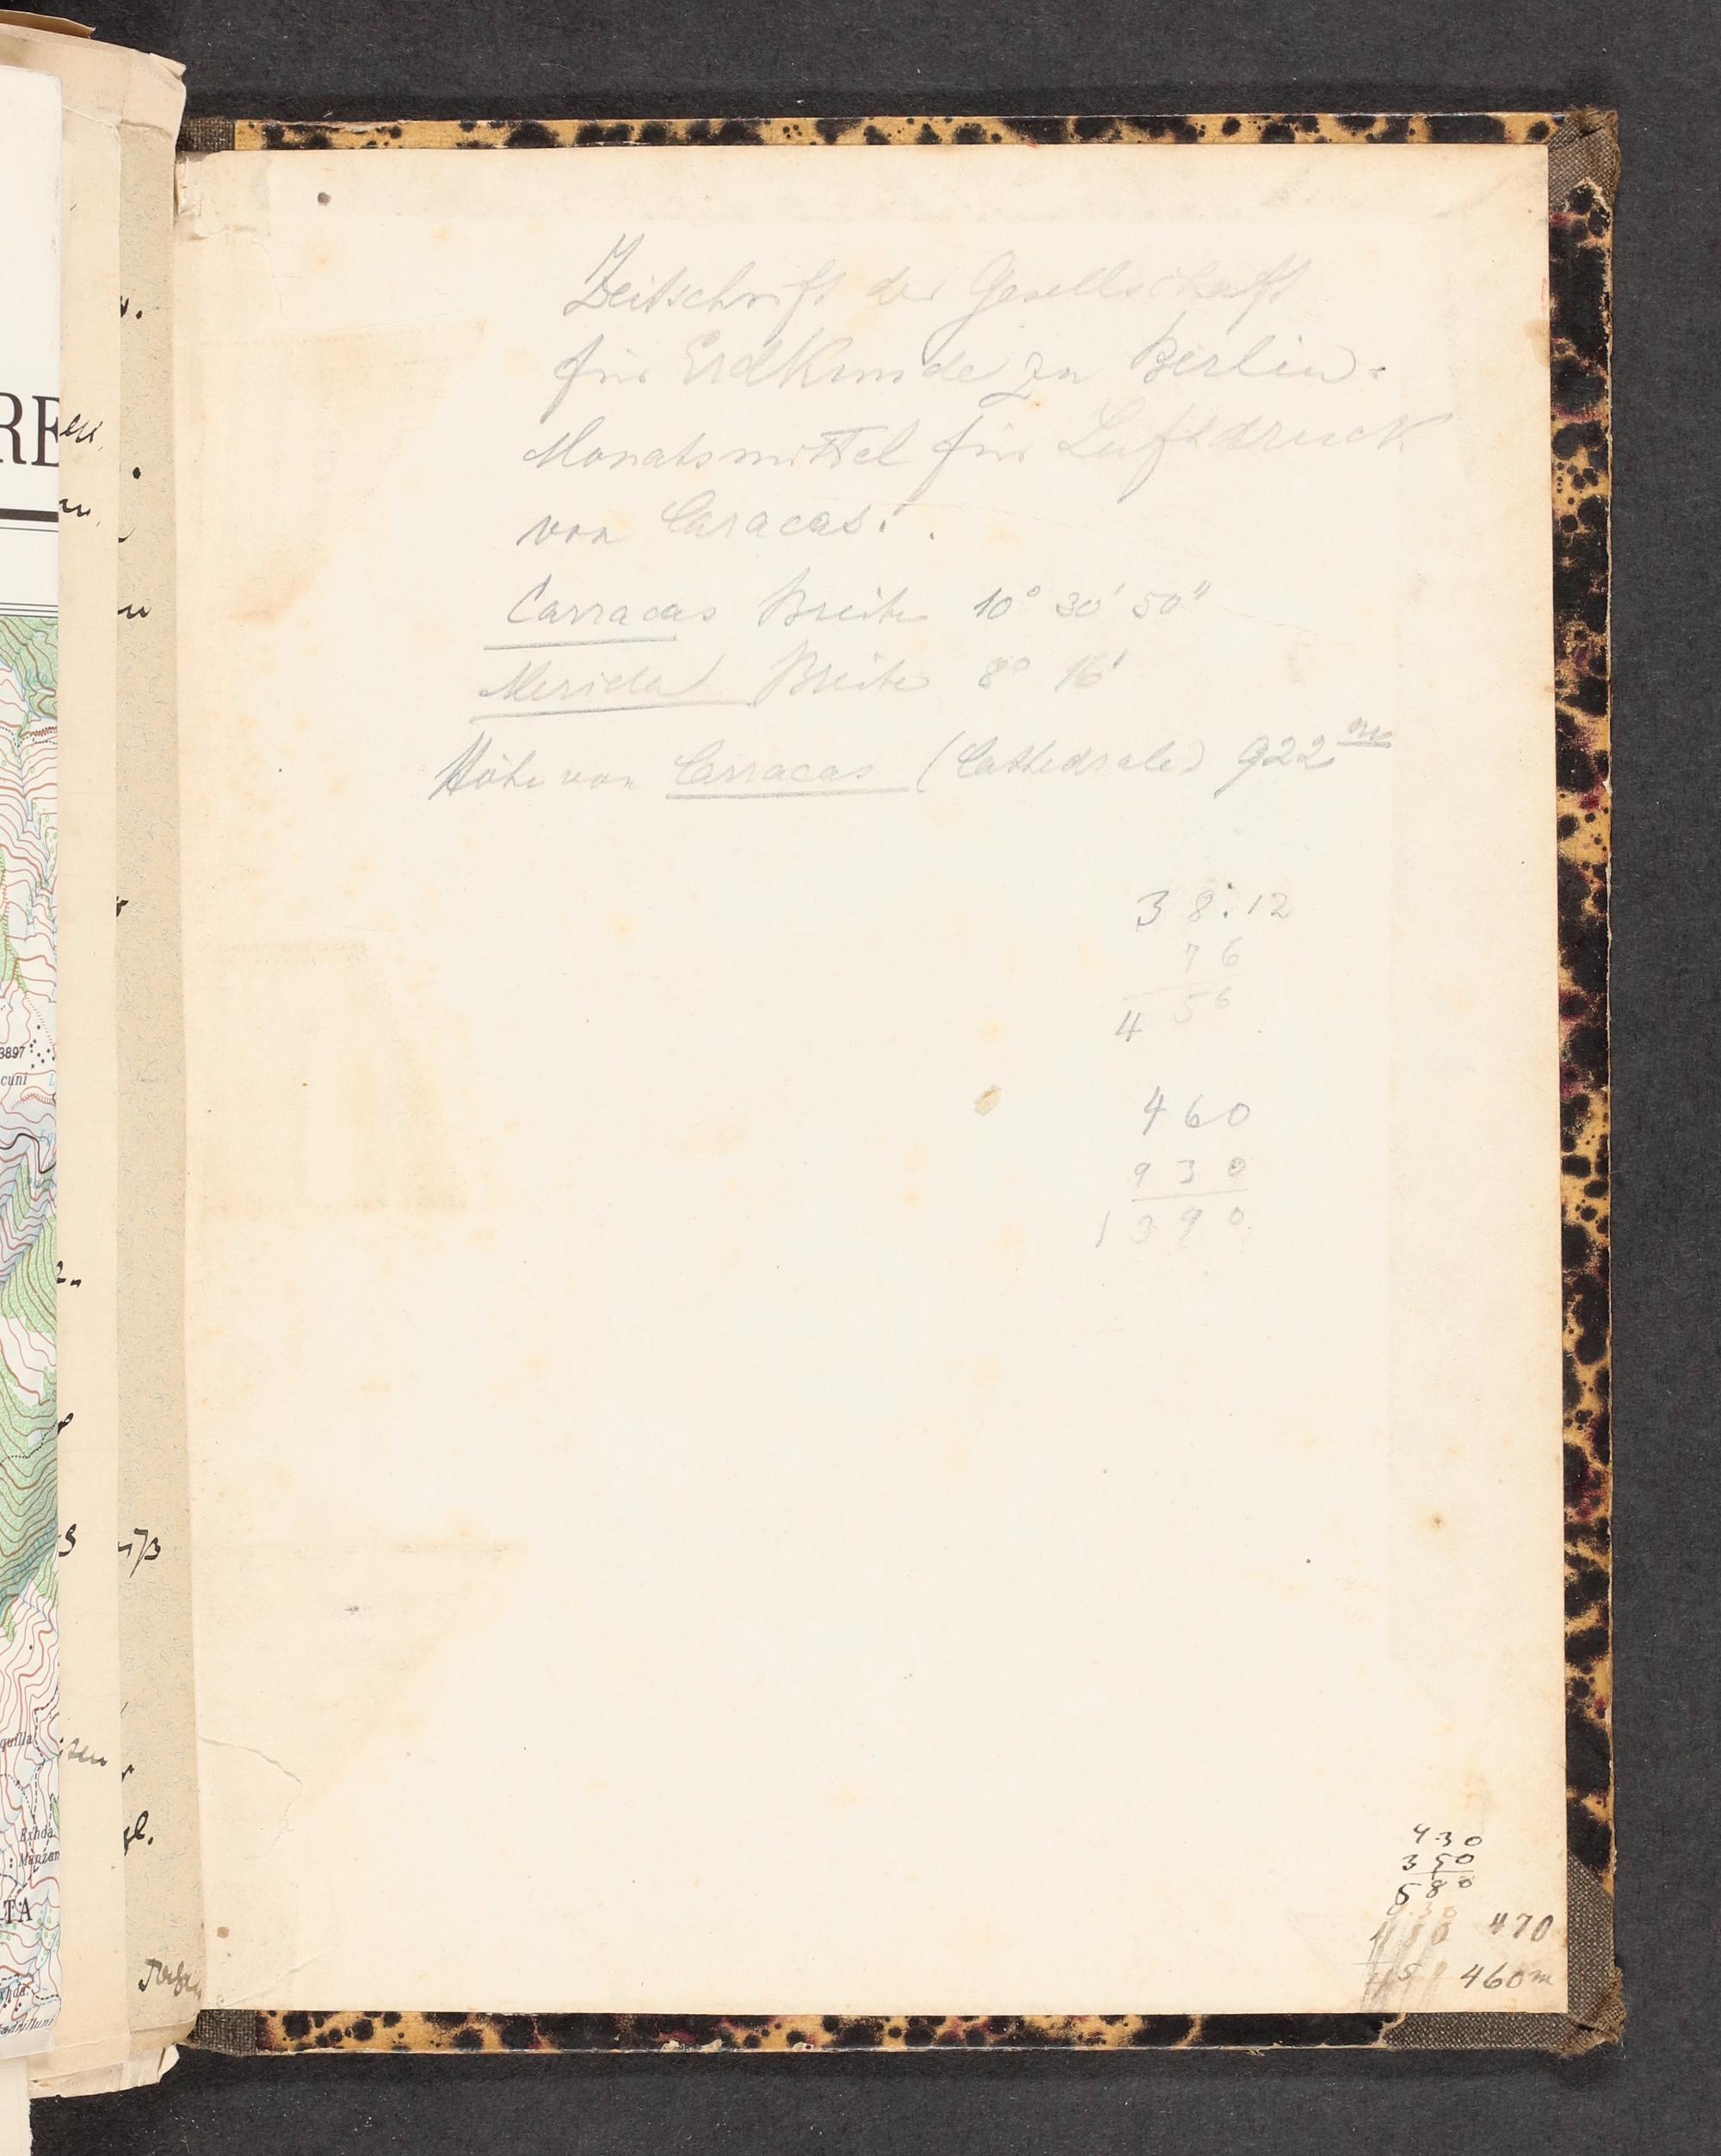 Zeitschrift der Gesellschaft
für Erdkunde zu Berlin.
Monatsmittel für Luftdruck
von Caracas.
Carracas Breite 10° 30' 50"
Merida Breite 8° 16'
Höhe von Carracas (Cathedrale) 922 m
38.12
76
456
460
930
1390
430
350
580
470
460 m
RE
3897
cuni
quilla
Exhda.
Manzan
TA